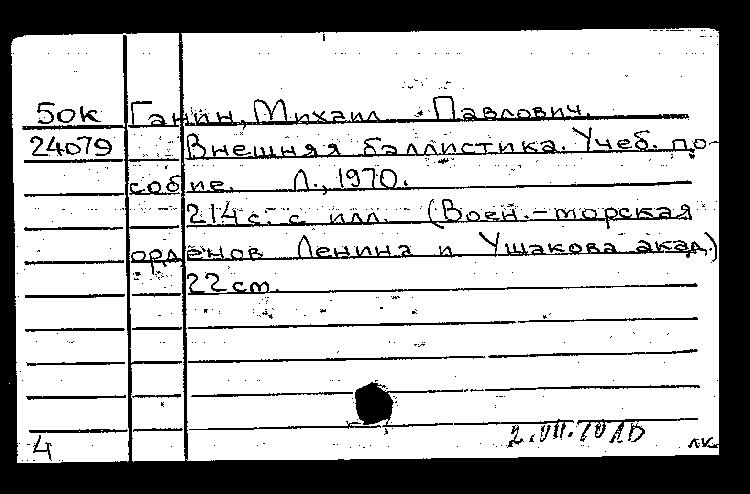 50к Ганин, Михаил Павлович.
24079 Внешняя баллистика. Учеб. по-
собие. Л., 1970.
214 с. с илл. (Воен.-морская
орденов Ленина и Ушакова акад.)
22 см.
4 2.VII.70 ЛБ лк